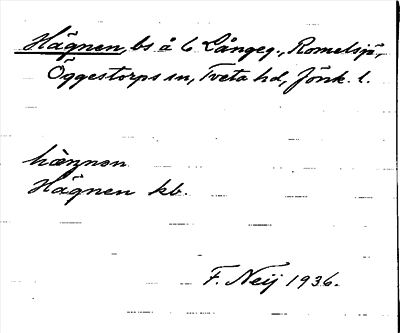 Hägnen, bs å 6 Långeg., Romelsjö,
Öggestorps sn, Tveta hd, Jönk. l.
hæŋnen
Hägnen kb.
F. Neij 1936.